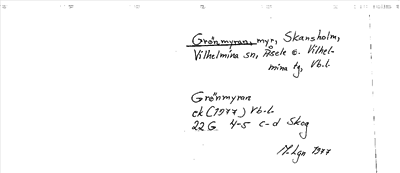 Grönmyran, myr, Skansholm,
Vilhelmina sn, Åsele o. Vilhel-
mina tg, Vb.l.
Grönmyran
ek (1977) Vb.l.
22G 4-5 c-d Skog
M.Lgn 1977